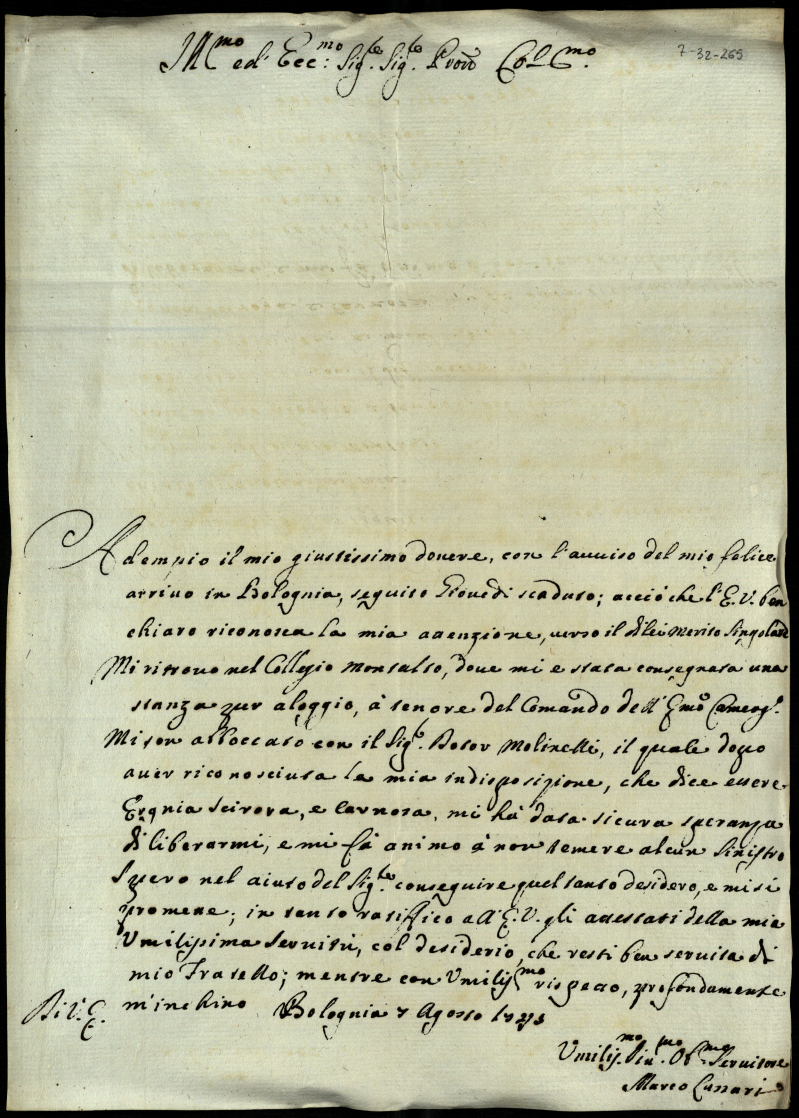 7-32-265
Ill.mo ed Ecc:mo Sig.re Sig.re Prõn Col.mo
Adempio il mio giustissimo douere, con l'auuiso del mio felice
arriuo in Bolognia, seguito Giouedi scaduto; acciò che l'E.V. ben
chiaro riconosca la mia attenzione, uerso il di lei merito Singolare
Mi ritrouo nel Collegio Montalto, doue mi è stata consegnata una
stanza per aloggio, à tenore del Comando dell' Emõ Camerg.o
Mi son abboccato con il Sig.r Dotor Molinelli, il quale dopo
auer riconosciuta la mia indisposizione, che dice essere
Ergnia Scirova, e Carnosa, mi hà data sicura speranza
di liberarmi, e mi fà animo à non temere alcun Sinistro
Spero nel aiuto del Sig.re conseguire quel tanto desidero, e mi si
promette; in tanto ratiffico all' E.V. gli attestati della mia
Umilissima Seruitù, col desiderio, che resti ben seruita di
mio Fratello; mentre con Umiliss.mo rispetto, profondamente
m'inchino
Di V.E. Bolognia 7 Agosto
Umiliss.mo Diu.mo Ob.mo Seruitore
Marco Cunari